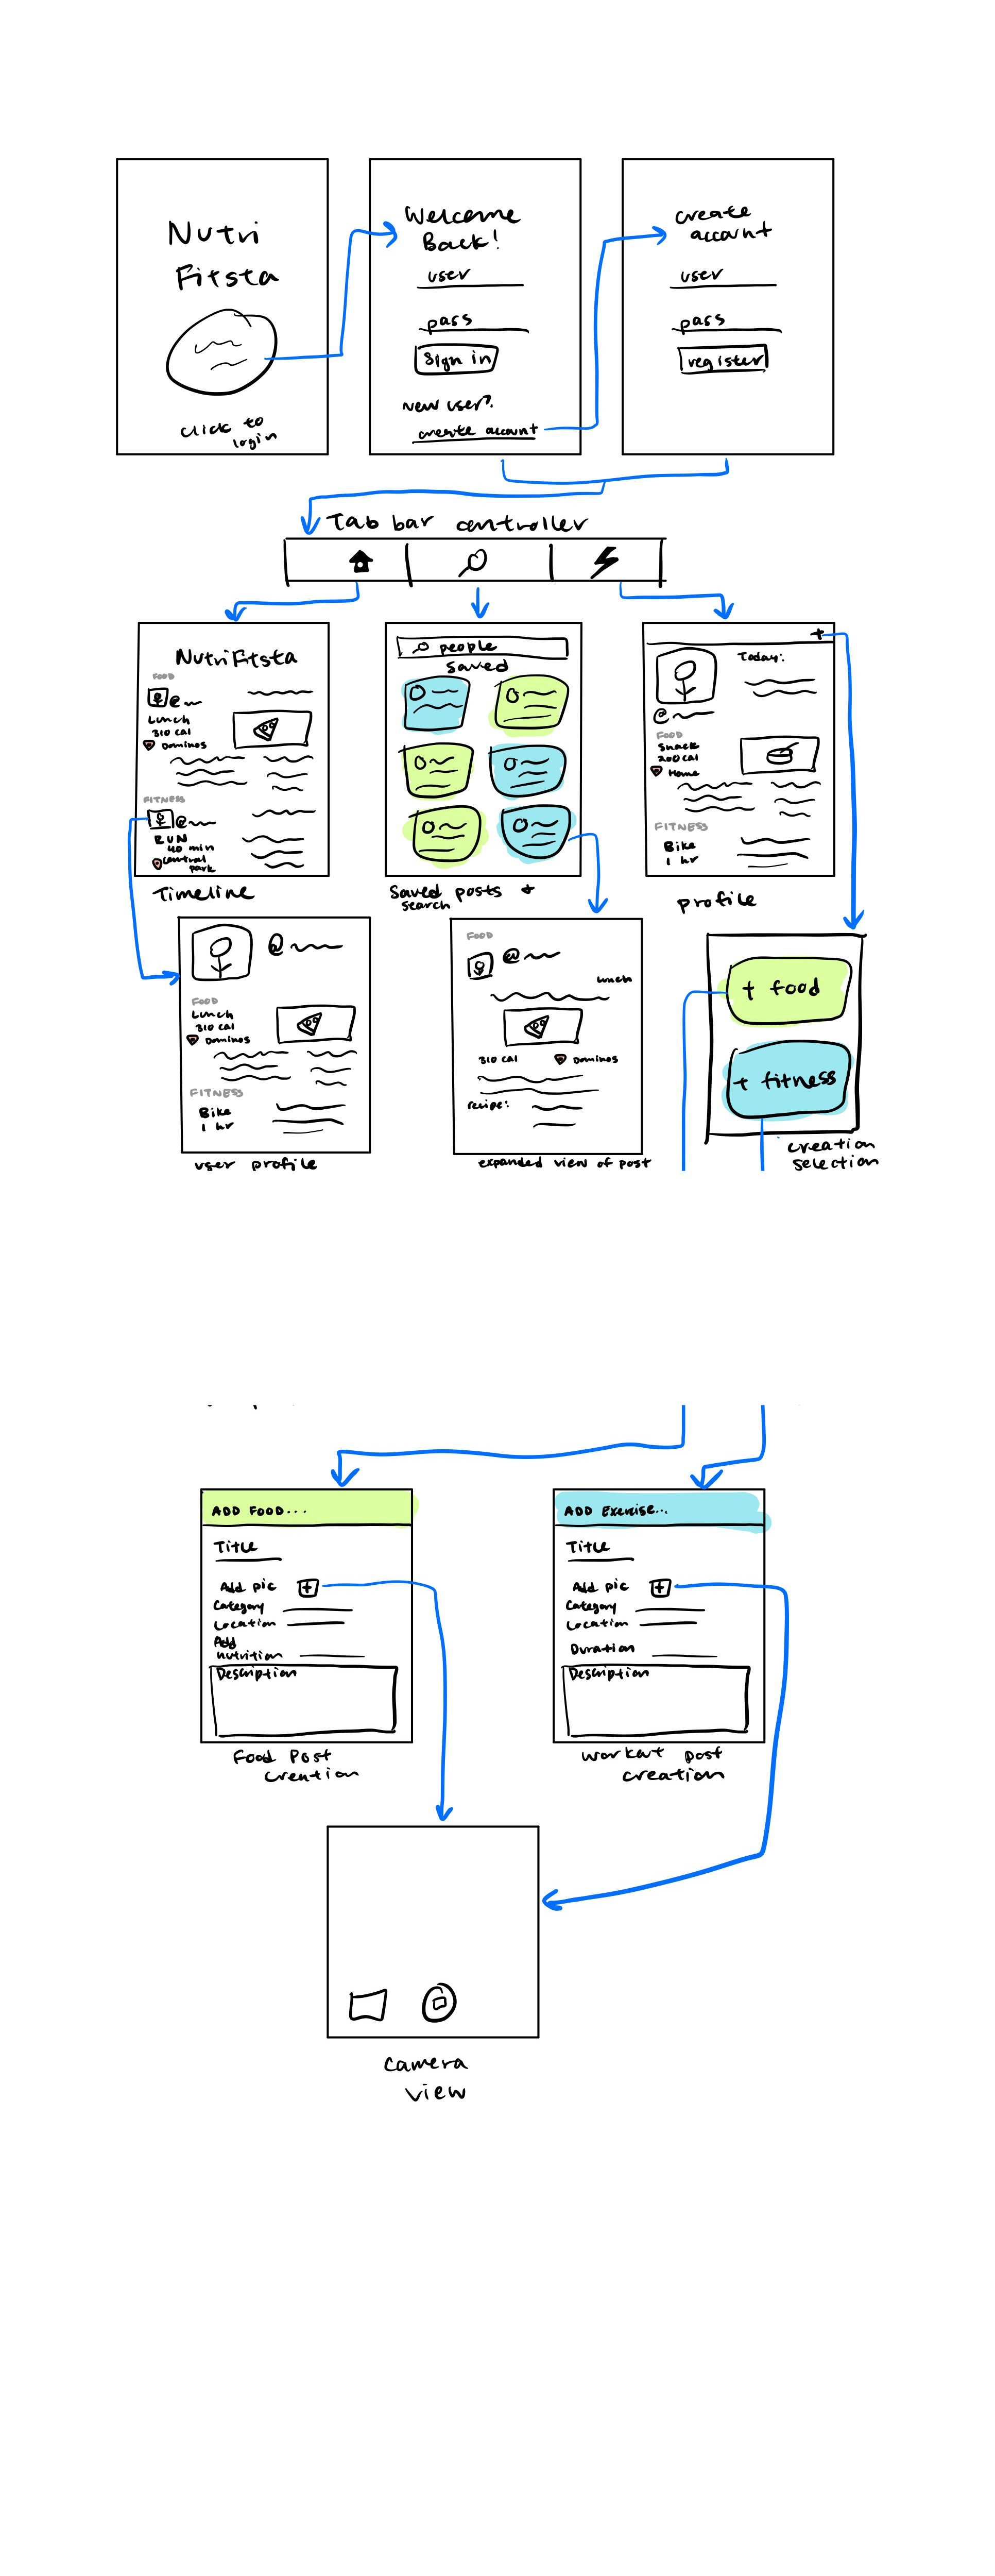 Nutri
Fitsta
click to
login
Welcome
Back!
user
pass
Sign in
New user?
create account
create
account
user
pass
register
Tab bar controller
NutriFitsta
FOOD
@
Lunch
310 cal
Dominos
FITNESS
@
RUN
40 min
Central
park
Timeline
people
Saved
Saved posts +
search
+
Today:
@
FOOD
Snack
200 cal
Home
FITNESS
Bike
1 hr
profile
@
FOOD
Lunch
310 cal
Dominos
FITNESS
Bike
1 hr
user profile
FOOD
@
Lunch
310 cal
Dominos
recipe:
expanded view of post
+ food
+ fitness
creation
selection
ADD FOOD...
Title
Add pic +
Category
Location
Add
nutrition
Description
Food Post
creation
ADD Exercise...
Title
Add pic +
Category
Location
Duration
Description
workout post
creation
camera
view